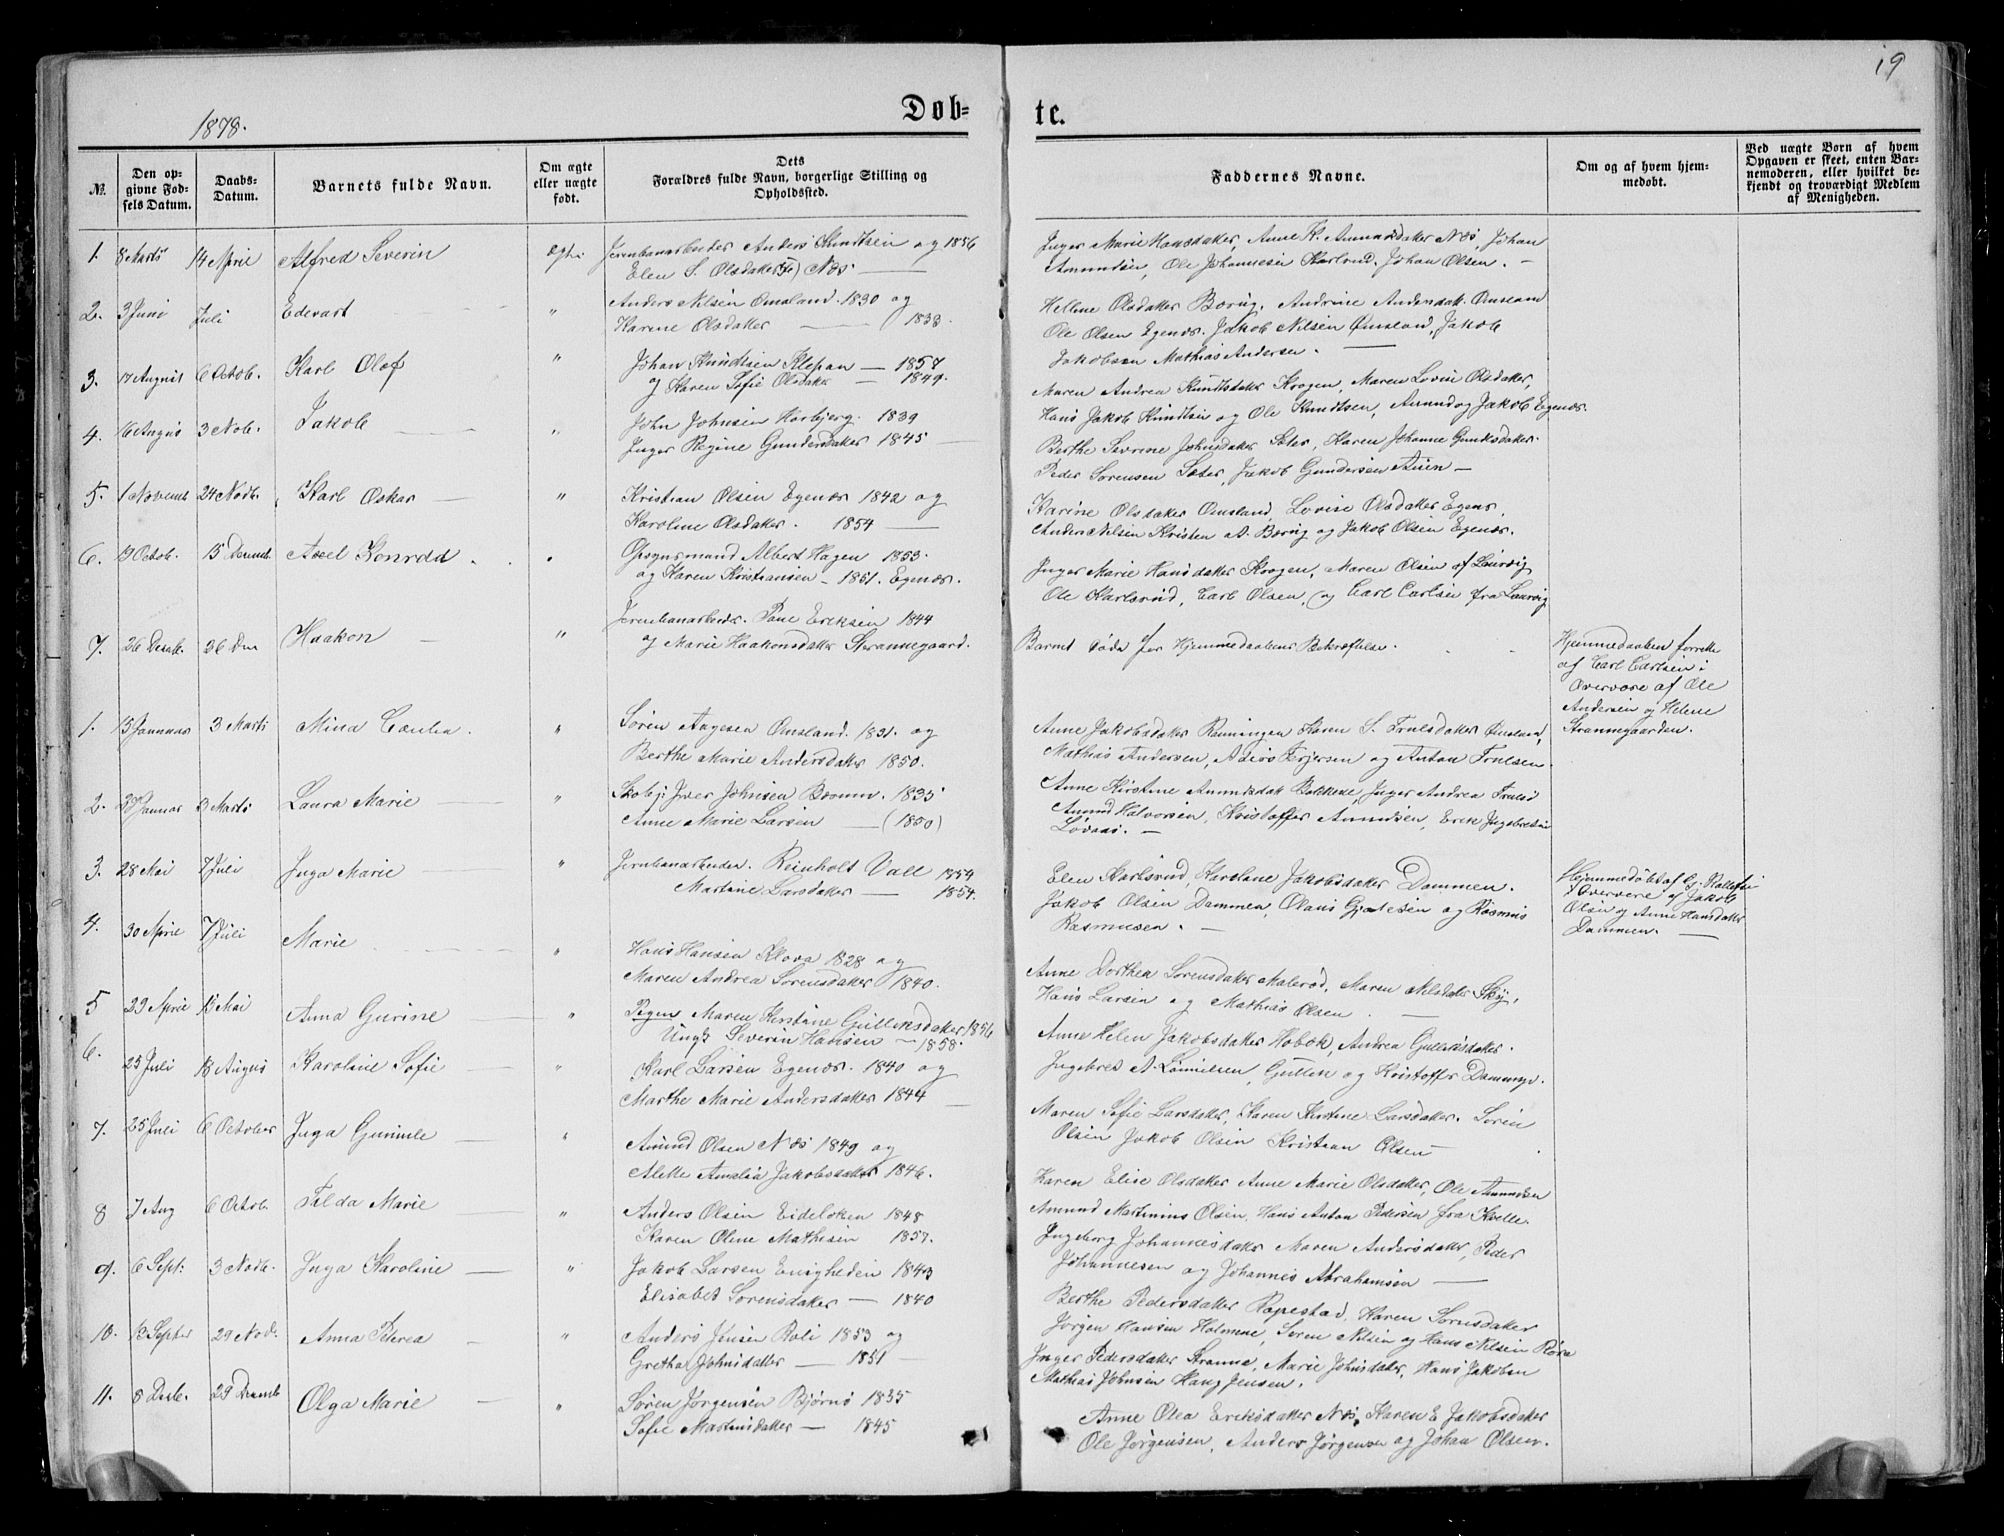 19
Døb-
te.
1878.
№.
Den op-
givne Fød-
sels Datum.
Daabs-
Datum.
Barnets fulde Navn.
Om ægte
eller uægte
født.
Dets
Forældres fulde Navn, borgerlige Stilling og
Opholdssted.
Faddernes Navne.
Om og af hvem hjem-
medøbt.
Ved uægte Børn af hvem
Opgaven er skeet, enten Bar-
nemoderen, eller hvilket be-
kjendt og troværdigt Medlem
af Menigheden.
1. 8 Marts 14 April Alfred Severin Jernbanearbeider Anders Knudtsen og 1856
Elen S. Olsdatter Næs.
Inger Marie Hansdatter, Anne K. Amundsdatter Næs, Johan
Amundsen, Ole Johannesen Karlsrud. Johan Olsen.
2. 3 Juni Juli Edevart " Anders Nilsen Omsland. 1830 og
Karine Olsdatter 1833.
Hellene Olsdatter Børug, Andrine Andersdatt. Omsland
Ole Olsen Egenæs. Jakob Nilsen Omsland, Jakob
Jakobsen Mathias Andersen.
3. 17 August 6 Octob. Karl Olof " Johan Knudtsen Klepan 1857
og Karen Sofie Olsdatter 1849.
Maren Andrea Knudtsdatter Krogen, Maren Lovise Olsdatter,
Hans Jakob Knudtsen og Ole Knudtsen, Amund og Jakob Egenæs.
4. 16 Augus 3 Nob. Jakob " John Johnsen Hørbjerg. 1839
Inger Regine Gundersdatter 1845
Berthe Severine Johnsdatter Sæter, Karen Johanne Gundersdatter.
Peder Sørensen Sæter, Jakob Gundersen
5. 1 Novemb 24 Novb. Karl Oskar " Kristian Olsen Egenæs 1842 og
Karoline Olsdatter. 1854
Karine Olsdatter Omsland, Lovise Olsdatter Egenæs,
Anders Nilsen Kristen A. Børug og Jakob Olsen Egenæs.
6. 19 Octob. 15 Decemb. Axel Konrdd Albert Hagen 1853.
og Karen Kristiansen 1851. Egenæs.
Inger Marie Hansdatter Krogen, Maren Olsen af Laurvig
Ole Karlsrud, Carl Olsen, og Carl Carlsen fra Laurvig
7. 26 Decb. 26 Dec Haakon " Jernbanearbeider. Eriksen 1844
og Marie Haakonsdatter Strannegaard.
Barnet døde før Hjemmedaabens Bekræftelse.
Hjemmedaaben forrette
af Carl Carlsen i
Overvære af Ole
Andersen og Helene
Strannegaarden.
1. 15 Januar 3 Marts Mina " Søren Aagesen Omsland. 1831. og
Berthe Marie Andersdatter 1850.
Anne Jakobsdatter Rønningen Karen S. Truelsdatter Omsland,
Mathias Andersen, Terjersen og Anton Truelsen.
2. Januar 3 Marts Laura Marie " Iver Johnsen 1835
Anne Marie Larsen (1850)
Anne Kirstine Amundsdatt Bakkene, Inger Andrea Truels
Amund Halvorsen, Kristoffer Amundsen, Erik Ingebretsen
Løvaas.
3. 28 Mai 7 Juli Inga Marie " Jernbanearbeider. Reinholt Vall 1854
Martine Larsdatter 1854.
Elen Karlsrud, Karoline Jakobsdatter Dammen.
Jakob Olsen Dammen, Olaus og Rasmus
Rasmusen.
Hjemmedøbt af G.
Overvære af Jakob
Olsen og Anne Hansdatter
Dammen.
4. 30 April 7 Juli Marie " Hans Hansen Klova 1828 og
Maren Andrea Sørensdatter 1840.
Anne Dorthea Sørensdatter Malerød, Maren Nilsdatter Sky,
Hans Larsen og Mathias Olsen.
5 29 April 13 Mai Anna Gurine " Pigen Maren Kirstine Gulliksdatter 1856
Ungk Severin Hansen 1858.
Anne Helen Jakobsdatter Hobæk, Andrea Gulliksdatter.
Ingebret A. Gullek og Kristoffer Dammyr.
6. 25 Juli 13 Augus Karoline Sofie " Karl Larsen Egenæs. 1840 og
Marthe Marie Andersdatter 1844
Maren Sofie Larsdatter, Karen Kirstine Larsdatter. Søren
Olsen Jakob Olsen Kristian Olsen
7. 25 Juli 6 October Inga Gunille " Amund Olsen Næs 1849 og
Alette Amalia Jakobsdatter 1846.
Karen Elise Olsdatter Anne Marie Olsdatter, Ole Amundsen
Amund Martinius Olsen, Hans Anton Pedersen fra Kvelle.
8 7 Aug 6 Octob. Tilda Marie " Anders Olsen Eideløken 1848
Karen Oline Mathisen 1857.
Ingeborg Johannesdatter Maren Andersdatter, Peder
Johannesen og Johannes Abrahamsen
9. 6 Sept: 3 Novb. Inga Karoline " Jakob Larsen Enigheden 1843
Elisabet Sørensdatter 1840
Berthe Pedersdatter Røpestad, Karen Sørnsdatter
Jørgen Hansen Holmene, Søren Nilsen og Hans Nilsen Røra
10. 13 Septer 29 Nov. Anna Petrea " Anders Jensen Roli 1853 og
Gretha Johnsdatter 1851
Inger Pedersdatter Stranna, Marie Johnsdatter, Hans Jakobsen
Mathias Johnsen Haug Jensen.
11. 8 Decb. 29 Decemb Olga Marie " Søren Jørgensen Bjørnø 1835
Sofie Martinsdatter 1845
Anne Olea Eriksdatter Næs, Karen E Jakobsdatter
Ole Jørgensen, Anders Jørgensen og Johan Olsen.